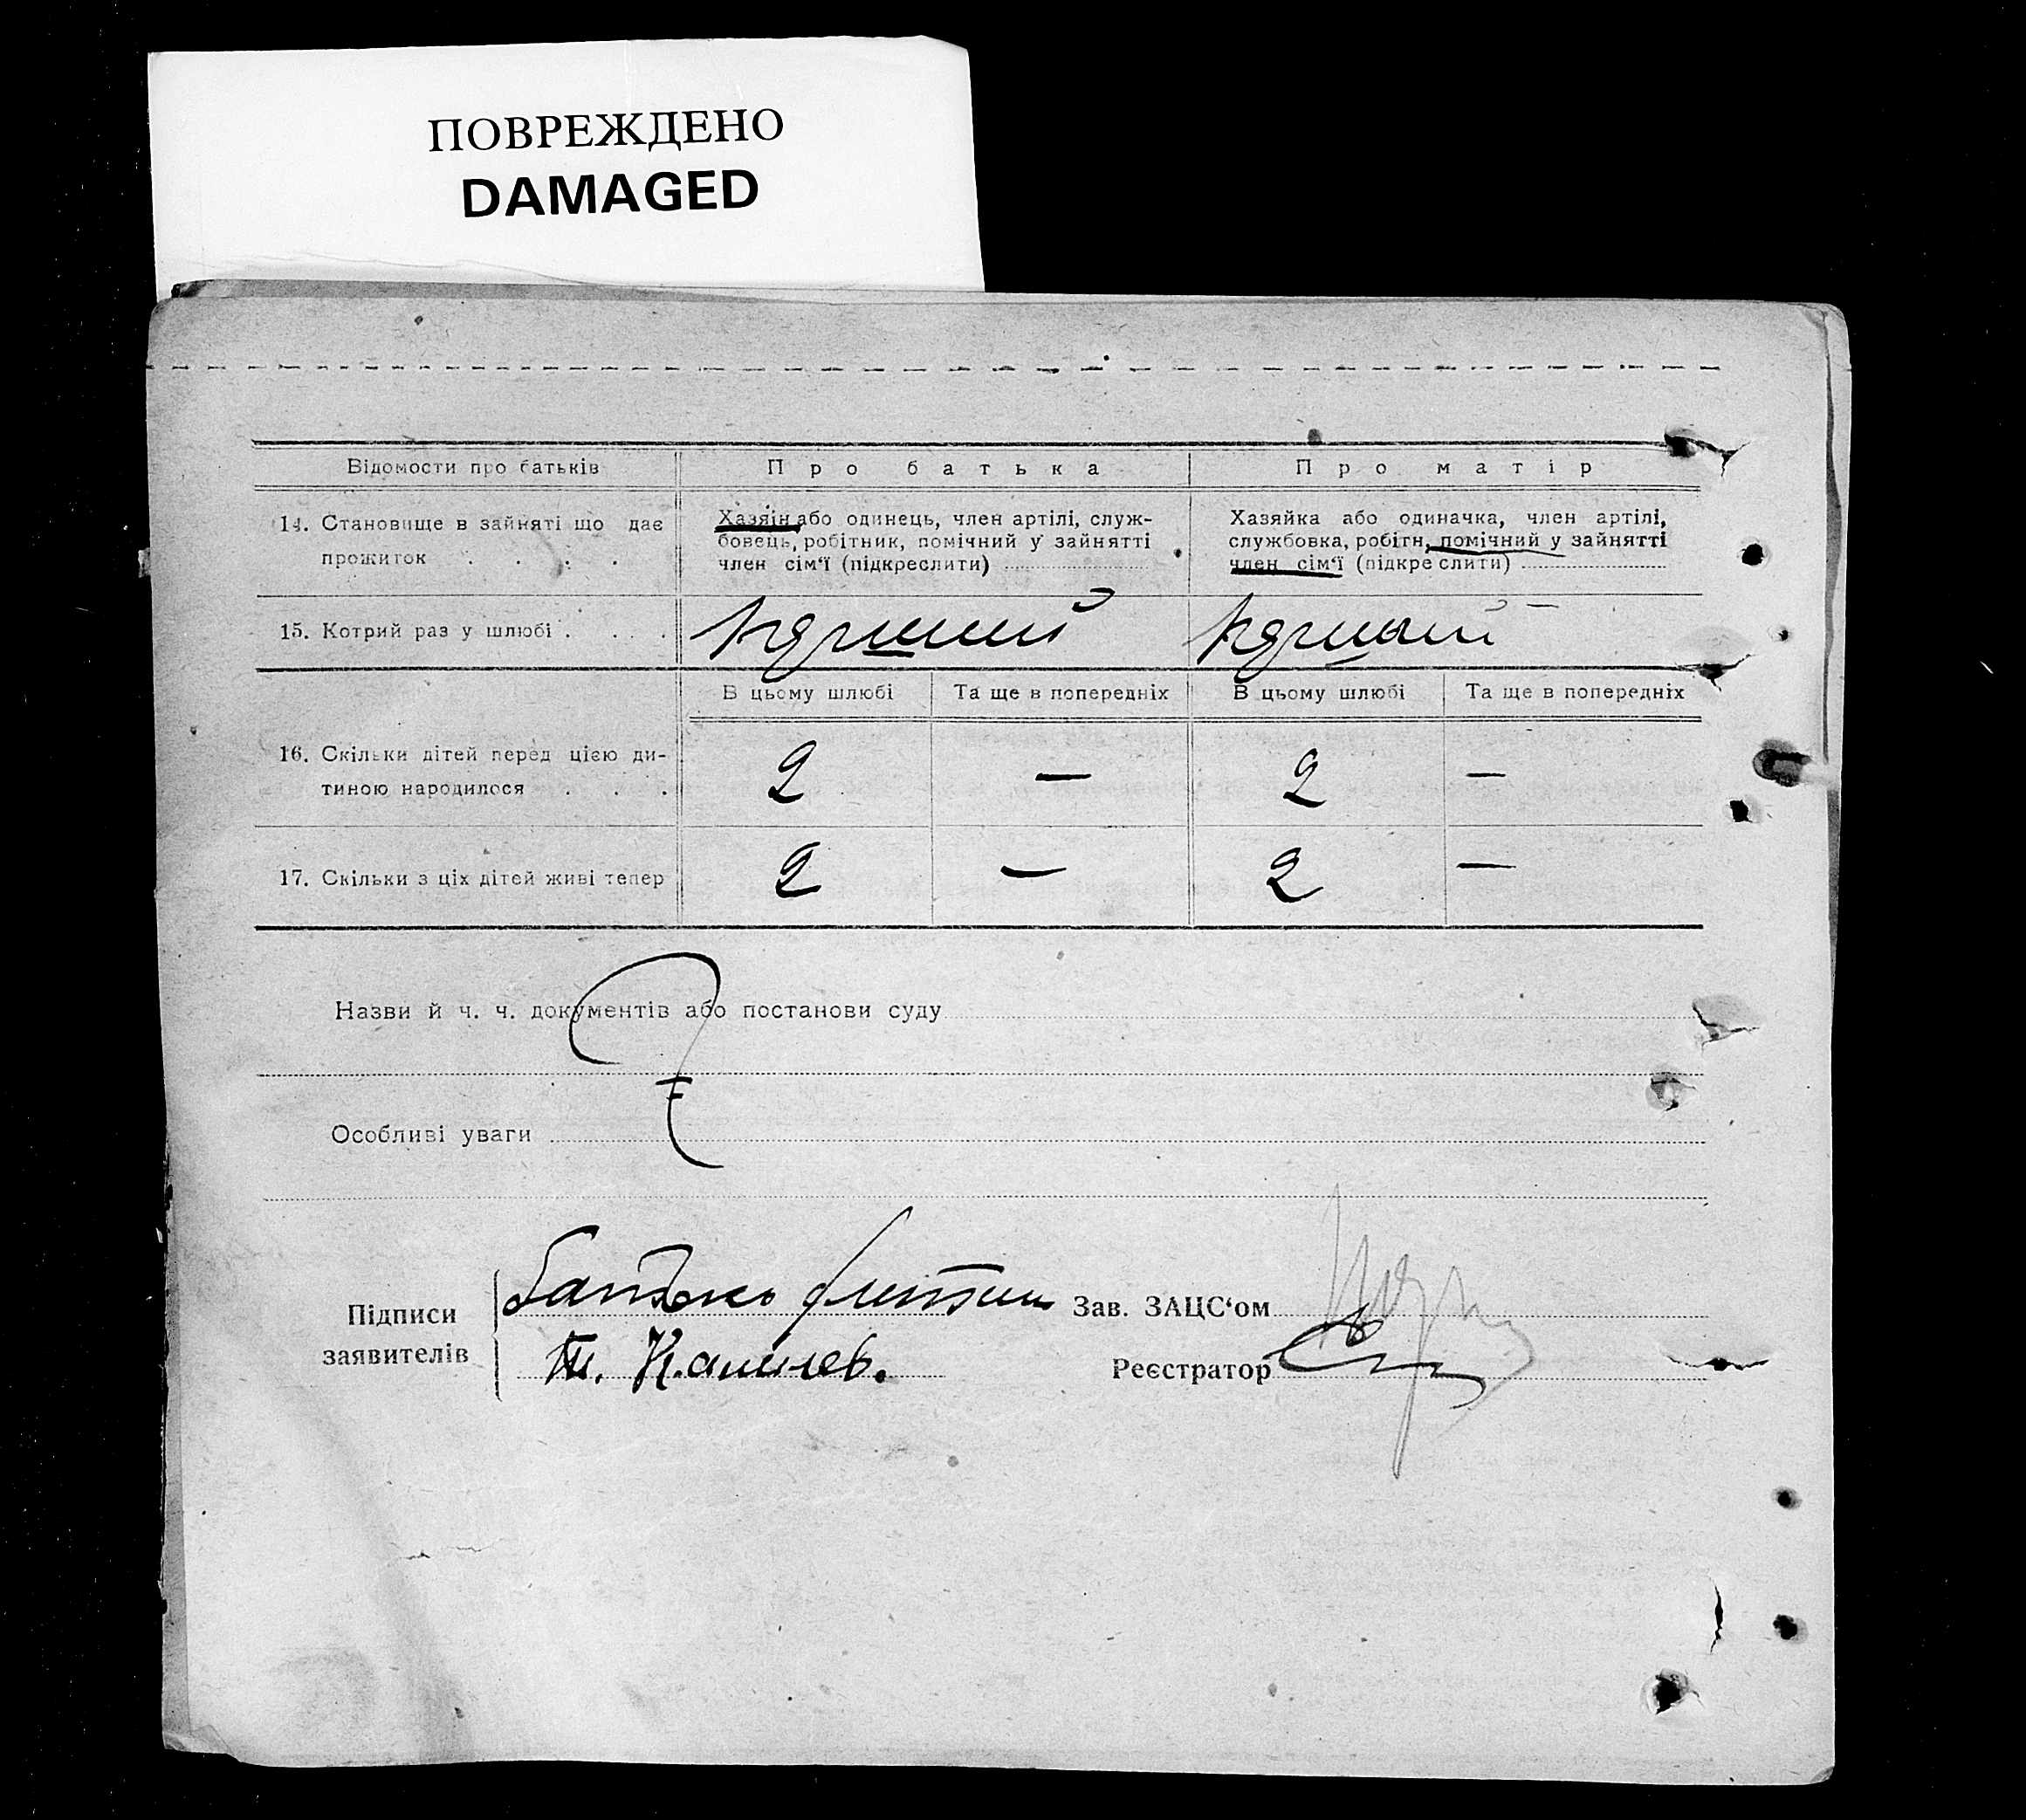 ПОВРЕЖДЕНО
DAMAGED
Відомости про батьків
Про батька
Про матір
14. Становище в зайняті що дає
прожиток . . . .
Хазяїн або одинець, член артілі, служ-
бовець, робітник, помічний у зайнятті
член сім'ї (підкреслити)
Хазяйка або одиначка, член артілі,
службовка, робітн, помічний у зайнятті
член сім'ї (підкреслити)
15. Котрий раз у шлюбі . . . .
В цьому шлюбі
Та ще в попередніх
В цьому шлюбі
Та ще в попередніх
16. Скільки дітей перед цією ди-
тиною народилося . . .
2
—
2
—
17. Скільки з ціх дітей живі тепер
2
—
2
—
Назви й ч. ч. документів або постанови суду
Особливі уваги
Підписи
заявителів
Батько
Зав. ЗАЦС'ом
Реєстратор